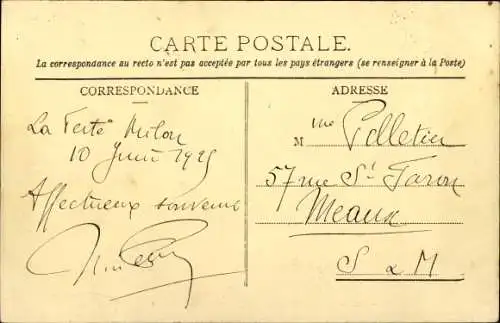 CARTE POSTALE.
La correspondance au recto n'est pas acceptée par tous les pays étrangers (se renseigner à la Poste)
CORRESPONDANCE
La Ferté Milon
10 Juin 1925
Affectueux souvenirs
ADRESSE
M me Pelletier
57 rue St Faron
Meaux
S & M